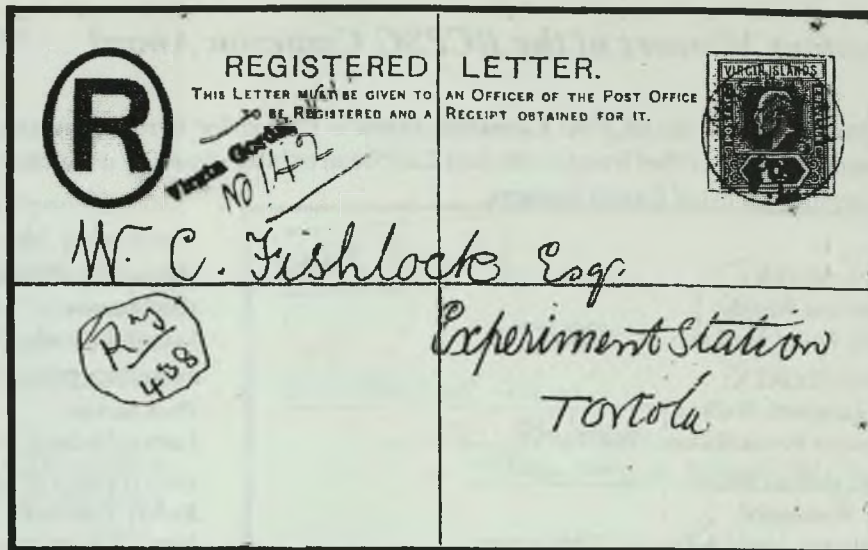 REGISTERED LETTER.
THIS LETTER MUST BE GIVEN TO AN OFFICER OF THE POST OFFICE
TO BE REGISTERED AND A RECEIPT OBTAINED FOR IT.
R
VIRGIN ISLANDS
Virgin Gorda.
No 142
W. C. Fishlock Esq.
Experiment Station
Tortola
Rg
488